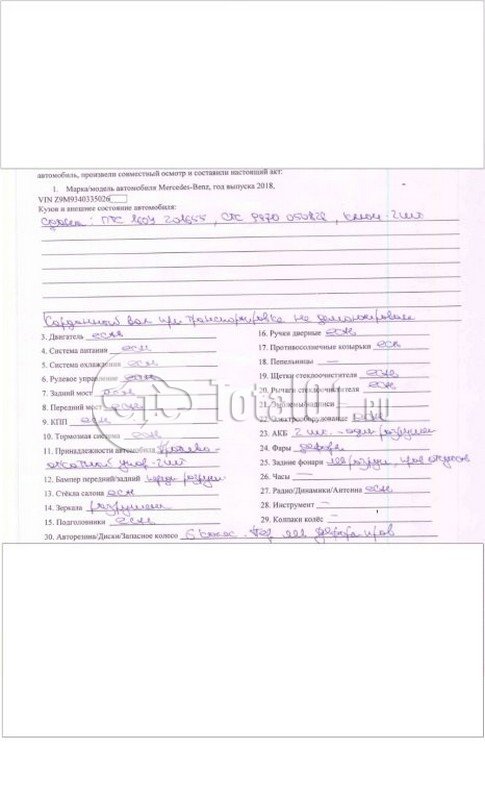 автомобиль, произвели совместный осмотр и составили настоящий акт:
1. Марка/модель автомобиля Mercedes-Benz, год выпуска 2018,
VIN Z9M9340335026
Кузов и внешнее состояние автомобиля:
ПТС СТС 9970 ключ-2шт
Карданный вал при транспортировке не демонтирован
3. Двигатель есть
4. Система питания есть
5. Система охлаждения есть
6. Рулевое управление есть
7. Задний мост есть
8. Передний мост есть
9. КПП есть
10. Тормозная система есть
11. Принадлежности автомобиля Противо-
откатный упор-2шт
12. Бампер передний/задний
13. Стёкла салона есть
14. Зеркала разрушены
15. Подголовники есть
16. Ручки дверные есть
17. Противосолнечные козырьки есть
18. Пепельницы —
19. Щетки стеклоочистителя есть
20. Рычаги стеклоочистителя есть
21. Эмблемы/надписи
22. Электрооборудование есть
23. АКБ 2 шт. - один разрушен
24. Фары дефор.
25. Задние фонари
26. Часы —
27. Радио/Динамики/Антенна есть
28. Инструмент —
29. Колпаки колёс —
30. Авторезина/Диски/Запасное колесо 6 колес.
Total01.ru